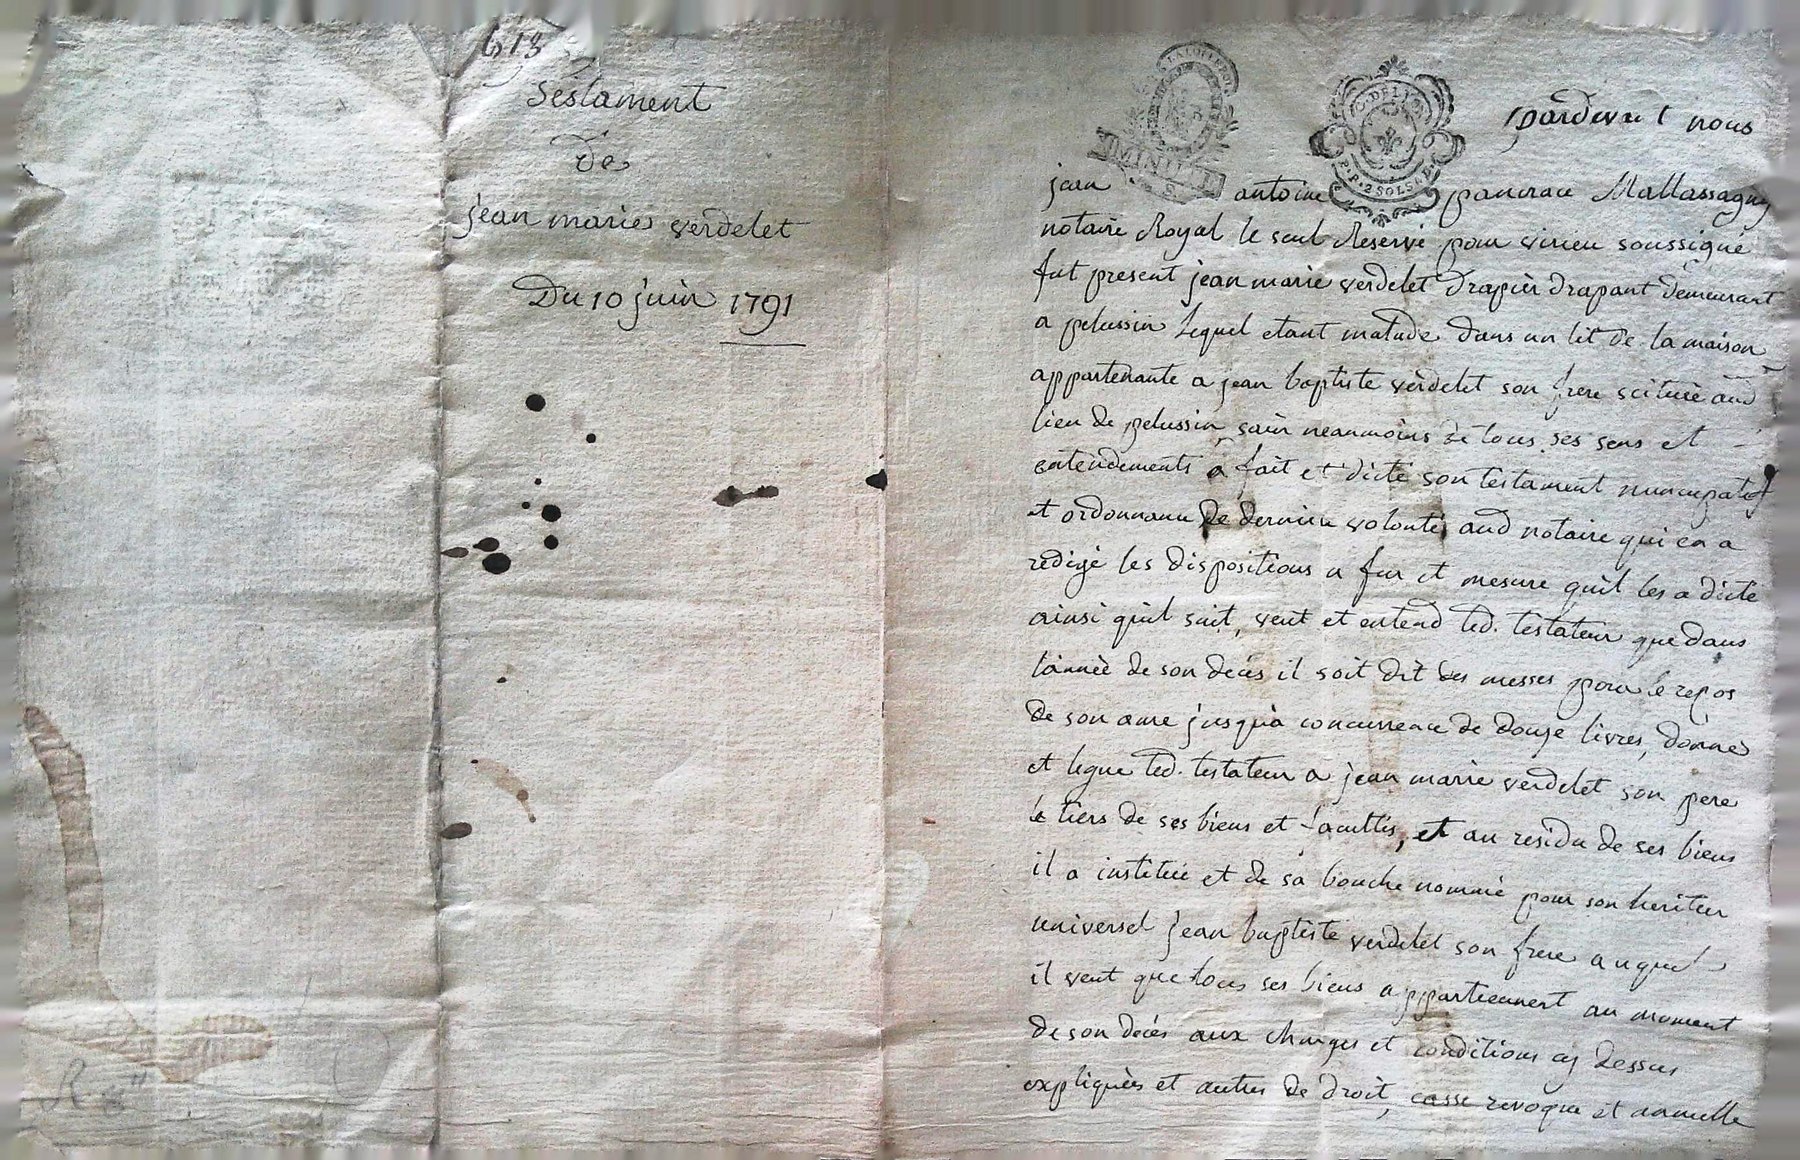 613
Testament
de
jean marie verdelet
Du 10 juin 1791
MINUT
S.
G. DE LYON
P.P. 2 SOLS 8 D
pardevant nous
jean antoine pancrace Mallassagny
notaire Royal le seul Reservé pour virieu soussigné
fut present jean marie verdelet drapier drapant demeurant
a pelussin lequel etant malade dans un lit de la maison
appartenante a jean baptiste verdelet son frere scituée aud
lieu de pelussin, sain neanmoins de tous ses sens et
entendements a fait et dicté son testament nuncupatif
et ordonnance de derniere volonté aud notaire qui en a
redigé les dispositions a fur et mesure quil les a dicté
ainsi quil suit, veut et entend led. testateur que dans
lànnèè de son decès il soit dit des messes pour le repos
de son ame jusquà concurrence de douze livres, donne
et legue led. testateur a jean marie verdelet son pere
le tiers de ses biens et facultés, et au residu de ses biens
il a instituéé et de sa bouche nommé pour son heritier
universel jean baptiste verdelet son frere auquel
il veut que tous ses biens appartiennent au moment
de son decés aux charges et conditions cy dessus
expliquées et autres de droit, casse revoque et annulle
R